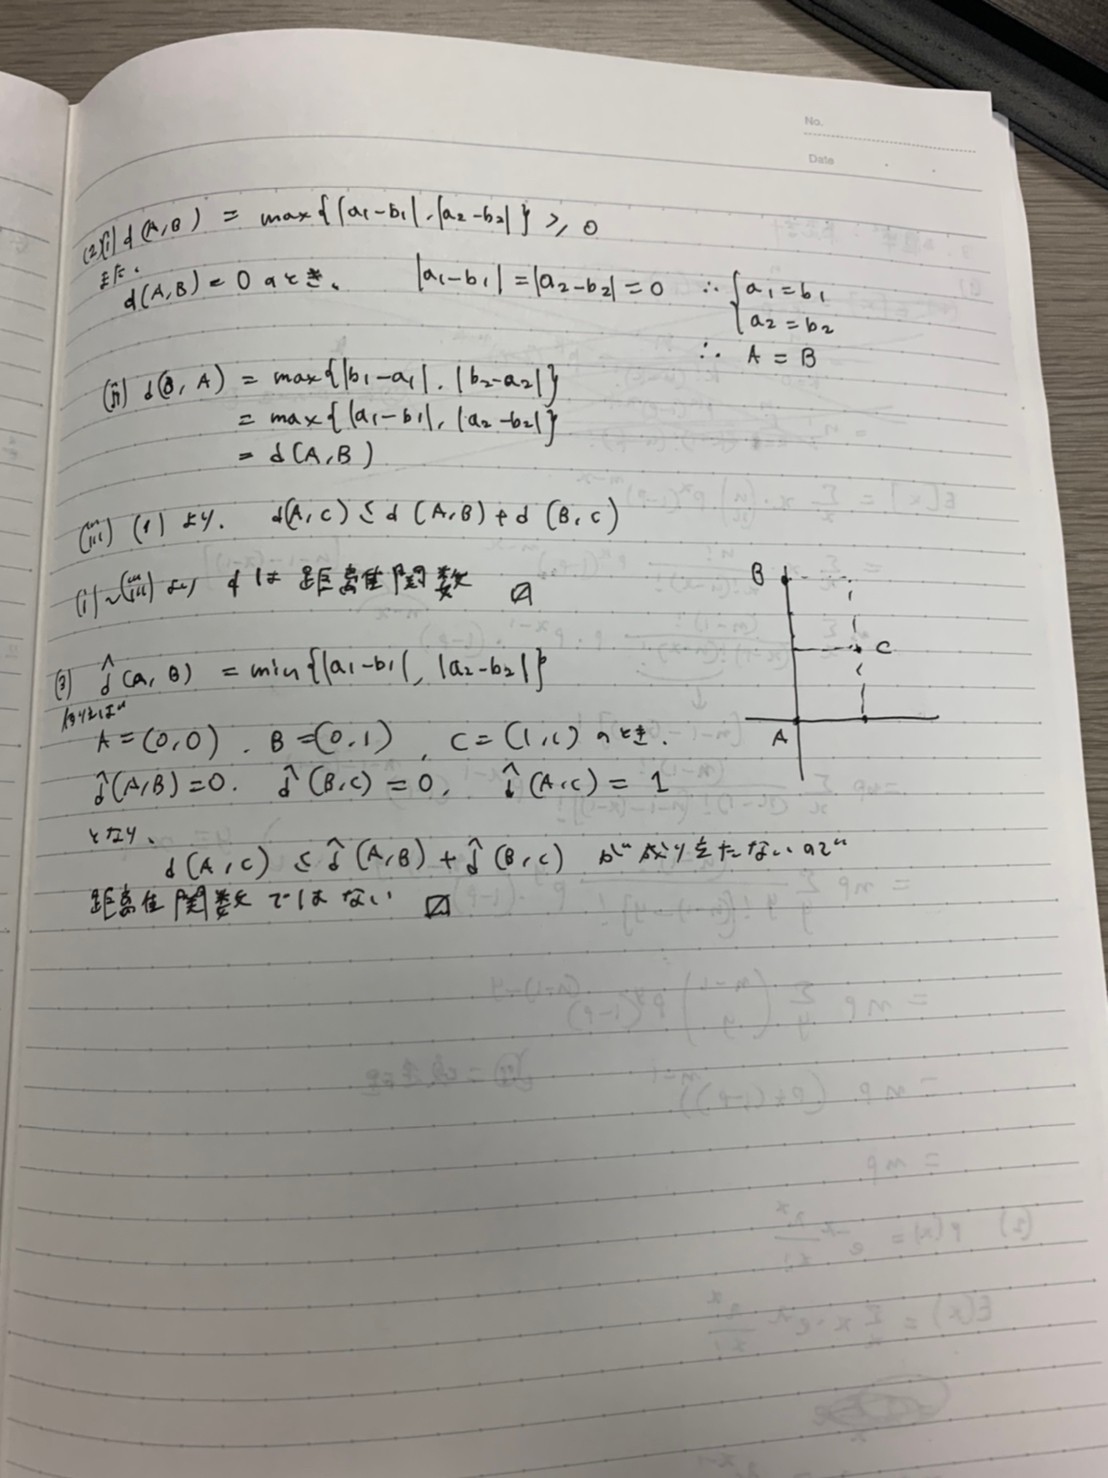 No.
Date
(2)(i) d(A,B) = max{|a₁-b₁|,|a₂-b₂|} ≥ 0
また、
d(A,B) = 0 のとき、 |a₁-b₁| = |a₂-b₂| = 0 ∴ { a₁=b₁
a₂=b₂
∴ A = B
(ii) d(B,A) = max{|b₁-a₁|,|b₂-a₂|}
= max{|a₁-b₁|,|a₂-b₂|}
= d(A,B)
(iii) (1)より. d(A,C) ≤ d(A,B) + d(B,C)
(i)~(iii)より dは距離関数
(3) d̂(a,B) = min{|a₁-b₁|, |a₂-b₂|}
例えば
A=(0,0). B=(0,1), C=(1,1)のとき.
d̂(A,B)=0. d̂(B,C)=0, d̂(A,C)=1
となり、
d(A,C) ≤ d̂(A,B) + d̂(B,C) が成りたたないので
距離関数ではない
B
C
A